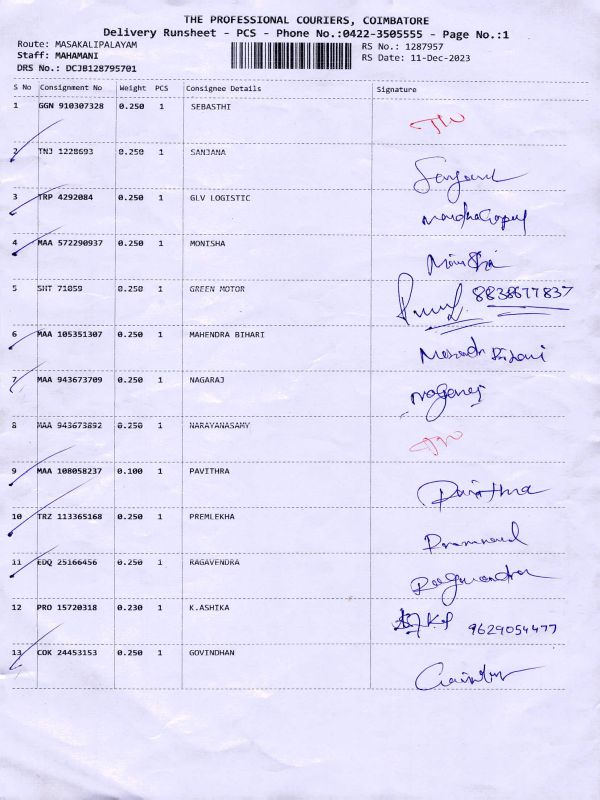 THE PROFESSIONAL COURIERS, COIMBATORE
Delivery Runsheet - PCS - Phone No.:0422-3505555 - Page No.:1
Route: MASAKALIPALAYAM RS No.: 1287957
Staff: MAHAMANI RS Date: 11-Dec-2023
DRS No.: DCJB128795701
S No Consignment No Weight PCS Consignee Details Signature
1 GGN 910307328 0.250 1 SEBASTHI
2 TNJ 1228693 0.250 1 SANJANA
3 TRP 4292084 0.250 1 GLV LOGISTIC
4 MAA 572290937 0.250 1 MONISHA
5 SHT 71059 0.250 1 GREEN MOTOR 8838677837
6 MAA 105351307 0.250 1 MAHENDRA BIHARI
7 MAA 943673709 0.250 1 NAGARAJ
8 MAA 943673892 0.250 1 NARAYANASAMY
9 MAA 108058237 0.100 1 PAVITHRA Pavithra
10 TRZ 113365168 0.250 1 PREMLEKHA
11 EDQ 25166456 0.250 1 RAGAVENDRA
12 PRO 15720318 0.230 1 K.ASHIKA 9629054477
13 COK 24453153 0.250 1 GOVINDHAN